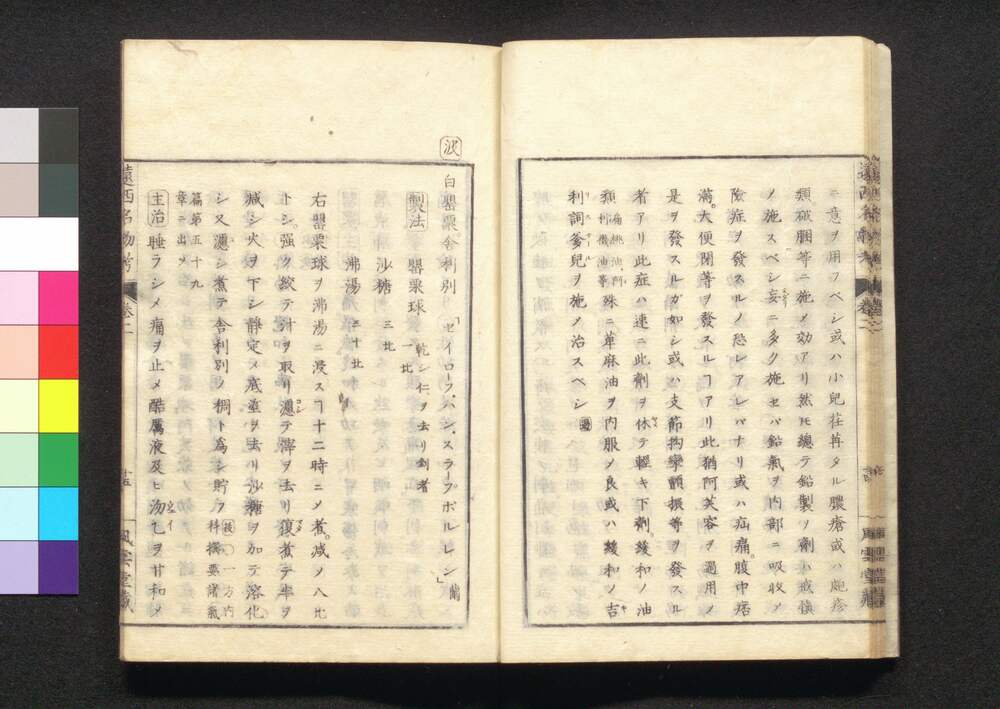 ニ意ヲ用フベシ或ハ小兒荏苒タル膿瘡或ハ皰疹
類破膕等ニ施メ効アリ然ㇳモ總テ鉛製ノ劑ハ戒愼
ノ施スベシ妄ニ多ク施セバ鉛氣ヲ内部ニ吸收メ
險症ヲ發スルノ恐レアレバナリ或ハ疝痛。腹中痞
滿。大便閉等ヲ發スルヿアリ此猶阿芙容ヲ過用メ
是ヲ發スルガ如シ或ハ支節拘攣顫振等ヲ發スル
者アリ此症ハ速ニ此劑ヲ休テ輕キ下劑。緩和ノ油
類扁桃油、阿利襪油等殊ニ萆麻油ヲ内服メ良或ハ緩和ノ吉
利詞爹兒ヲ施メ治スベシ
波
白罌粟舍利別「セイロープ、ハン、スラープボルレン」蘭
製法 罌粟球 乾シ仁ヲ去リ剉者 一比
沙糖 三比
沸湯 二十比
右罌粟球ヲ沸湯ニ浸スヿ十二時ニメ煮。减メ八比
トシ。強ク絞テ汁ヲ取リ漉テ滓ヲ去リ復煮テ半ヲ
减シ火ヲ下シ靜定メ底垽ヲ去リ沙糖ヲ加テ溶化
シ又漉シ煮テ舍利別ノ稠ト爲シ貯フ 後〇一方内科撰要諸氣
篇第五十九章ニ出ヅ
主治 睡ラシメ痛ヲ止メ酷厲液及ヒ沕乙ヲ甘和メ
遠西名物考 卷二
十五
風雲堂藏